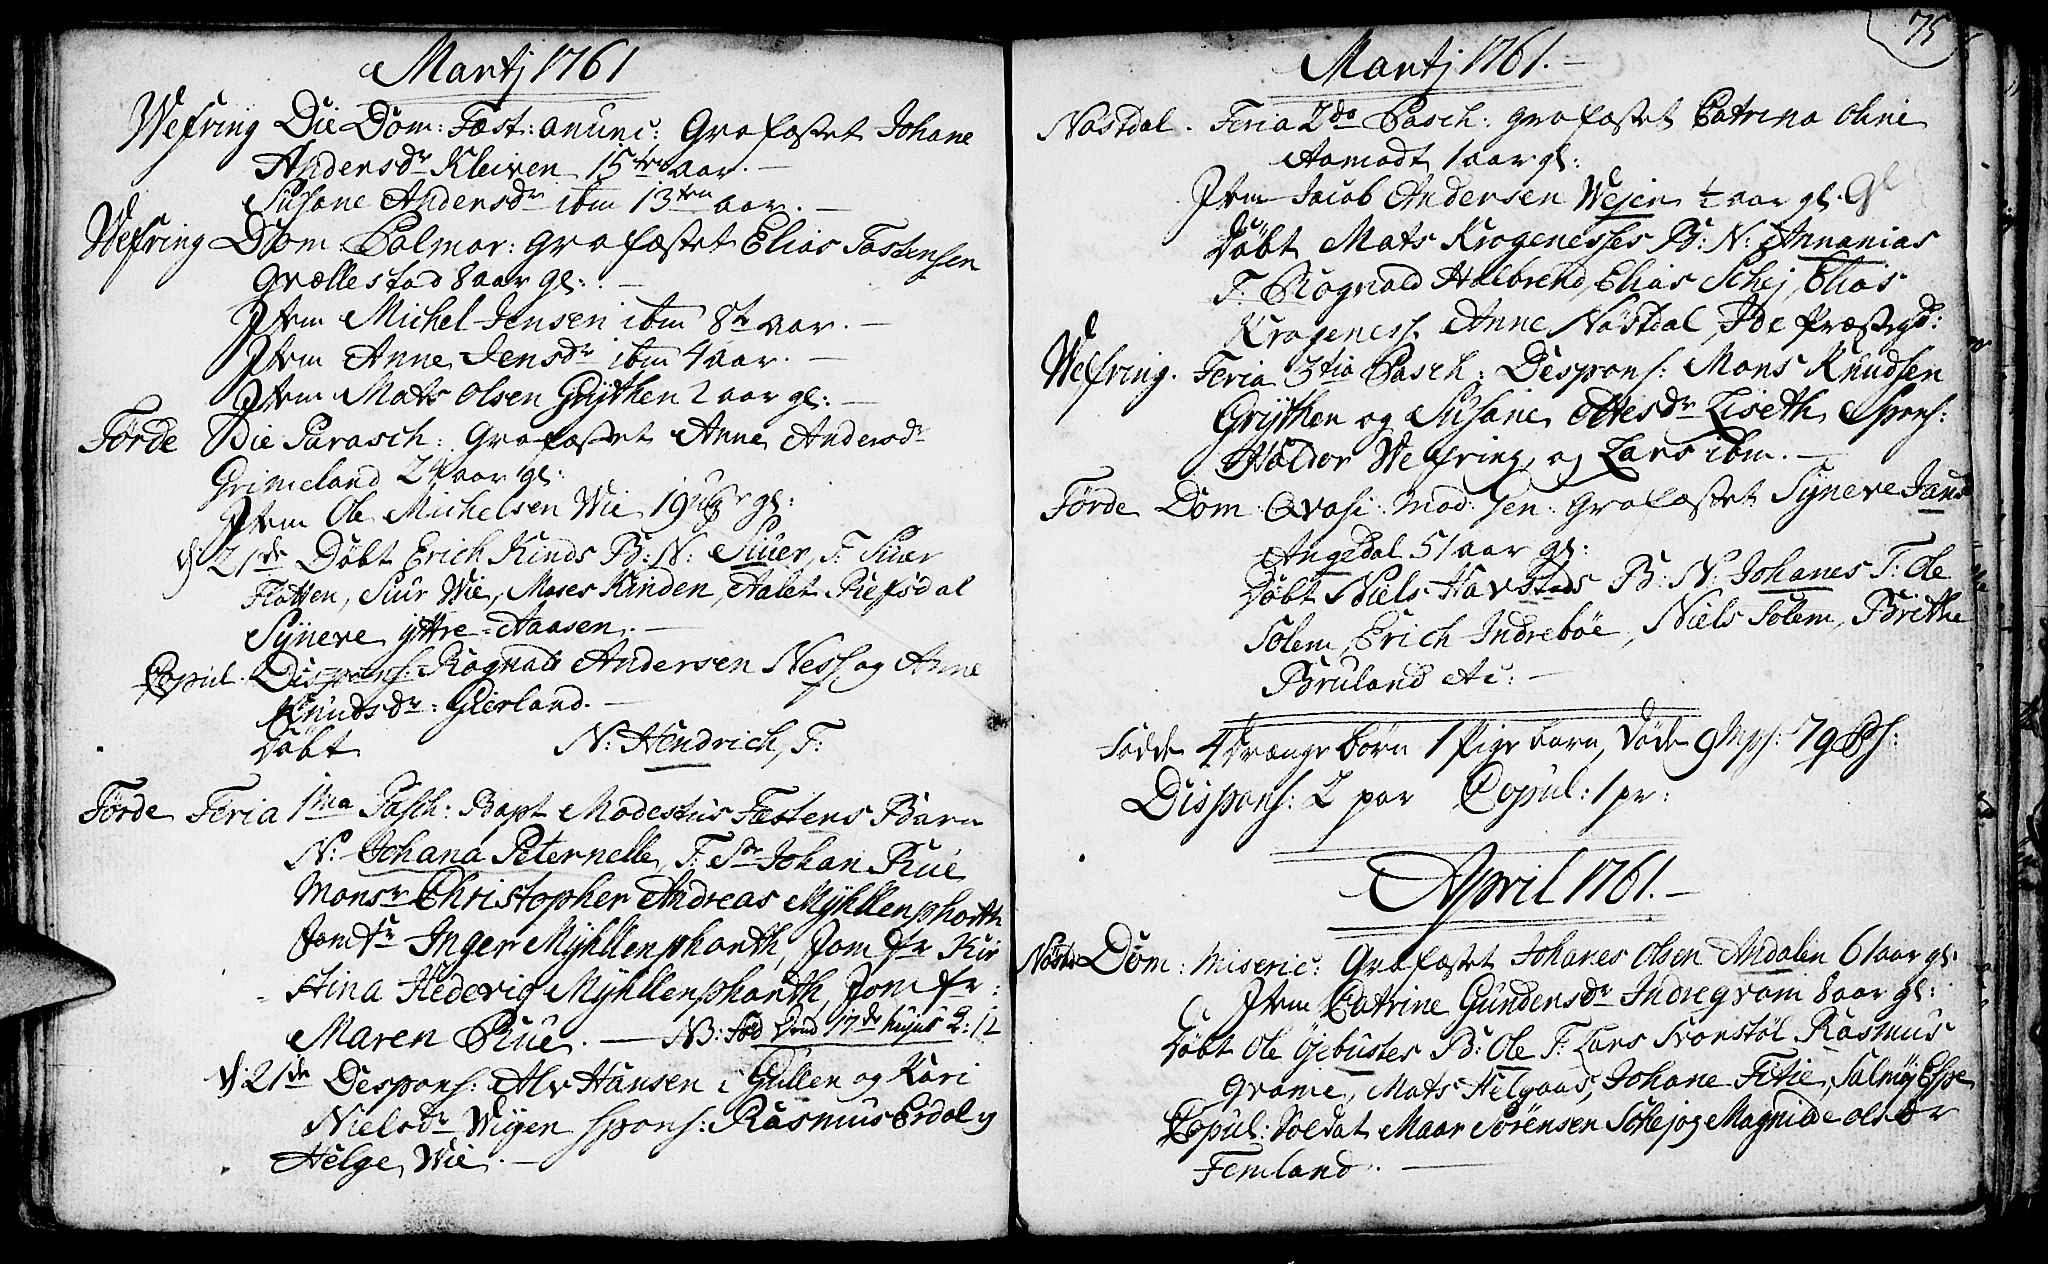 Martj 1761
Wefring Die Dom: Fæst: anunc: Grafæstet Johane
Andersdr Kleiven 15ten aar. —
Susane Andersdr ibm 13ten aar. —
Wefring Dom Palmar: Grafæstet Elias Tostensen
Grællestad 8 aar gl: —
Item Michel Jensen ibm 8t aar. —
Item Anne Jensdr ibm 4 aar. —
Item Mats Olsen Grÿthen 2 aar gl: —
Førde Die Parasch: Grafæstet Anne Andersdr
Grimeland 24 aar gl:
Item Ole Michelsen Wie 19 gl:
d 21de Døbt Erich Kinds B: N: Siuer, F. Siuer
Flatten, Siur Wie, Moses Kinden, Aalet Riefsdal
Sÿneve ÿttre=Aaasen. —
Copul. Dispons: Rognald Andersen Ness og Anne
Knudsdr: Gierland. —
Døbt N: Hendrich, F:
Førde Feria 1ma Pasch: Bapt Modestus Fæstens Barn
N: Johana Peternelle, F. Sr Johan Rue
Monsr Christopher Andreas Mÿhllenphorth
Jomfr Inger Mÿhllenphorth, Jomfr Kir
stina Hedevig Mÿhllenphorth, Jomfr:
Maren Rue. — NB: fød dend 17de hujus
d: 21de Despons: Alv Hansen i Gullen og Kari
Nielsdr Wÿen spons: Rasmus Erdal og
Helge Wie. —
75
Martj 1761. —
Nøstdal. Feria 2da Pasch: grafæstet Catrina Oline
Aamodt 1 aar gl:
Item Jacob Andersen Wejen ½ aar gl. Gl
Døbt Mats Krogenesses B: N: Annanias
F. Rognald Halbrend, Elias Schej, Elias
Krogeness, Anne Nøstdal, Ide Præstegd:
Wefring. Feria 3tia Pasch: Despons: Mons Knudsen
Grÿthen og Susane Ottesdr Liseth Spons:
Haldor Wefring, og Lars ibm. —
Førde Dom. Qvasi. mod. gen. Grafæstet Sÿneve Jans
Angedal 51 aar gl:
Døbt Niels Havstads B: N: Johanes F. Ole
Solem, Erich Indrebøe, Niels Solem, Brithe
Bruland etc: —
Fødde 4 drænge børn 1 Pige barn, døde 9 79
Dispons: 2 par Copul: 1 pr:
April 1761. —
Nøstd Dom: Miseric: Grafæstet Johanes Olsen Andalen 61 aar gl:
Item Catrine Gundersdr Indregvam 8 aar gl:
Døbt Ole Øjebustes B: Ole F. Lars Svonstøl Rasmus
Gvame, Mats Helgaas, Johane Fitie, Salmøj Espe
Copul: Soldat Maar Sørensen Schej og Magnilde olsdr
Femland. —